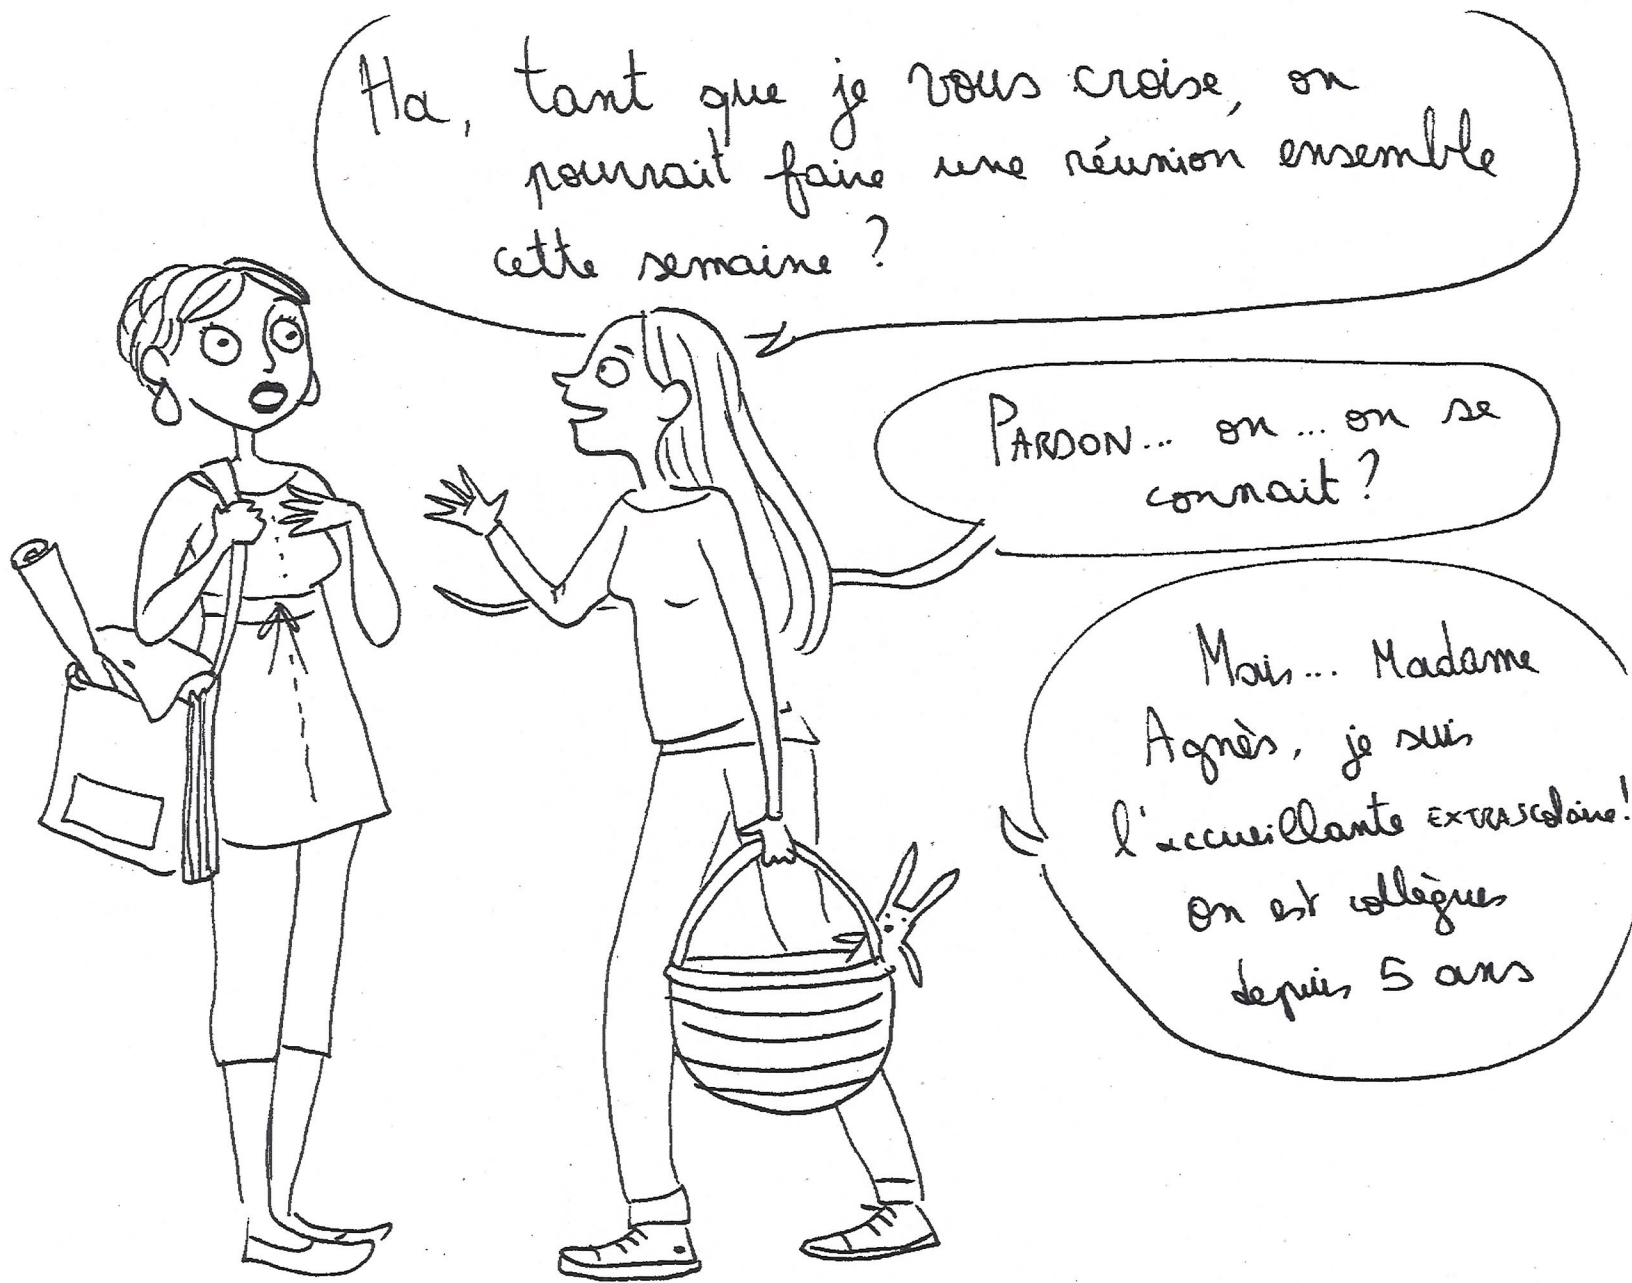 Ha, tant que je vous croise, on
pourrait faire une réunion ensemble
cette semaine ?
PARDON... on... on se
connait ?
Mais... Madame
Agnès, je suis
l'accueillante EXTRASCOlaire!
on est collègues
depuis 5 ans